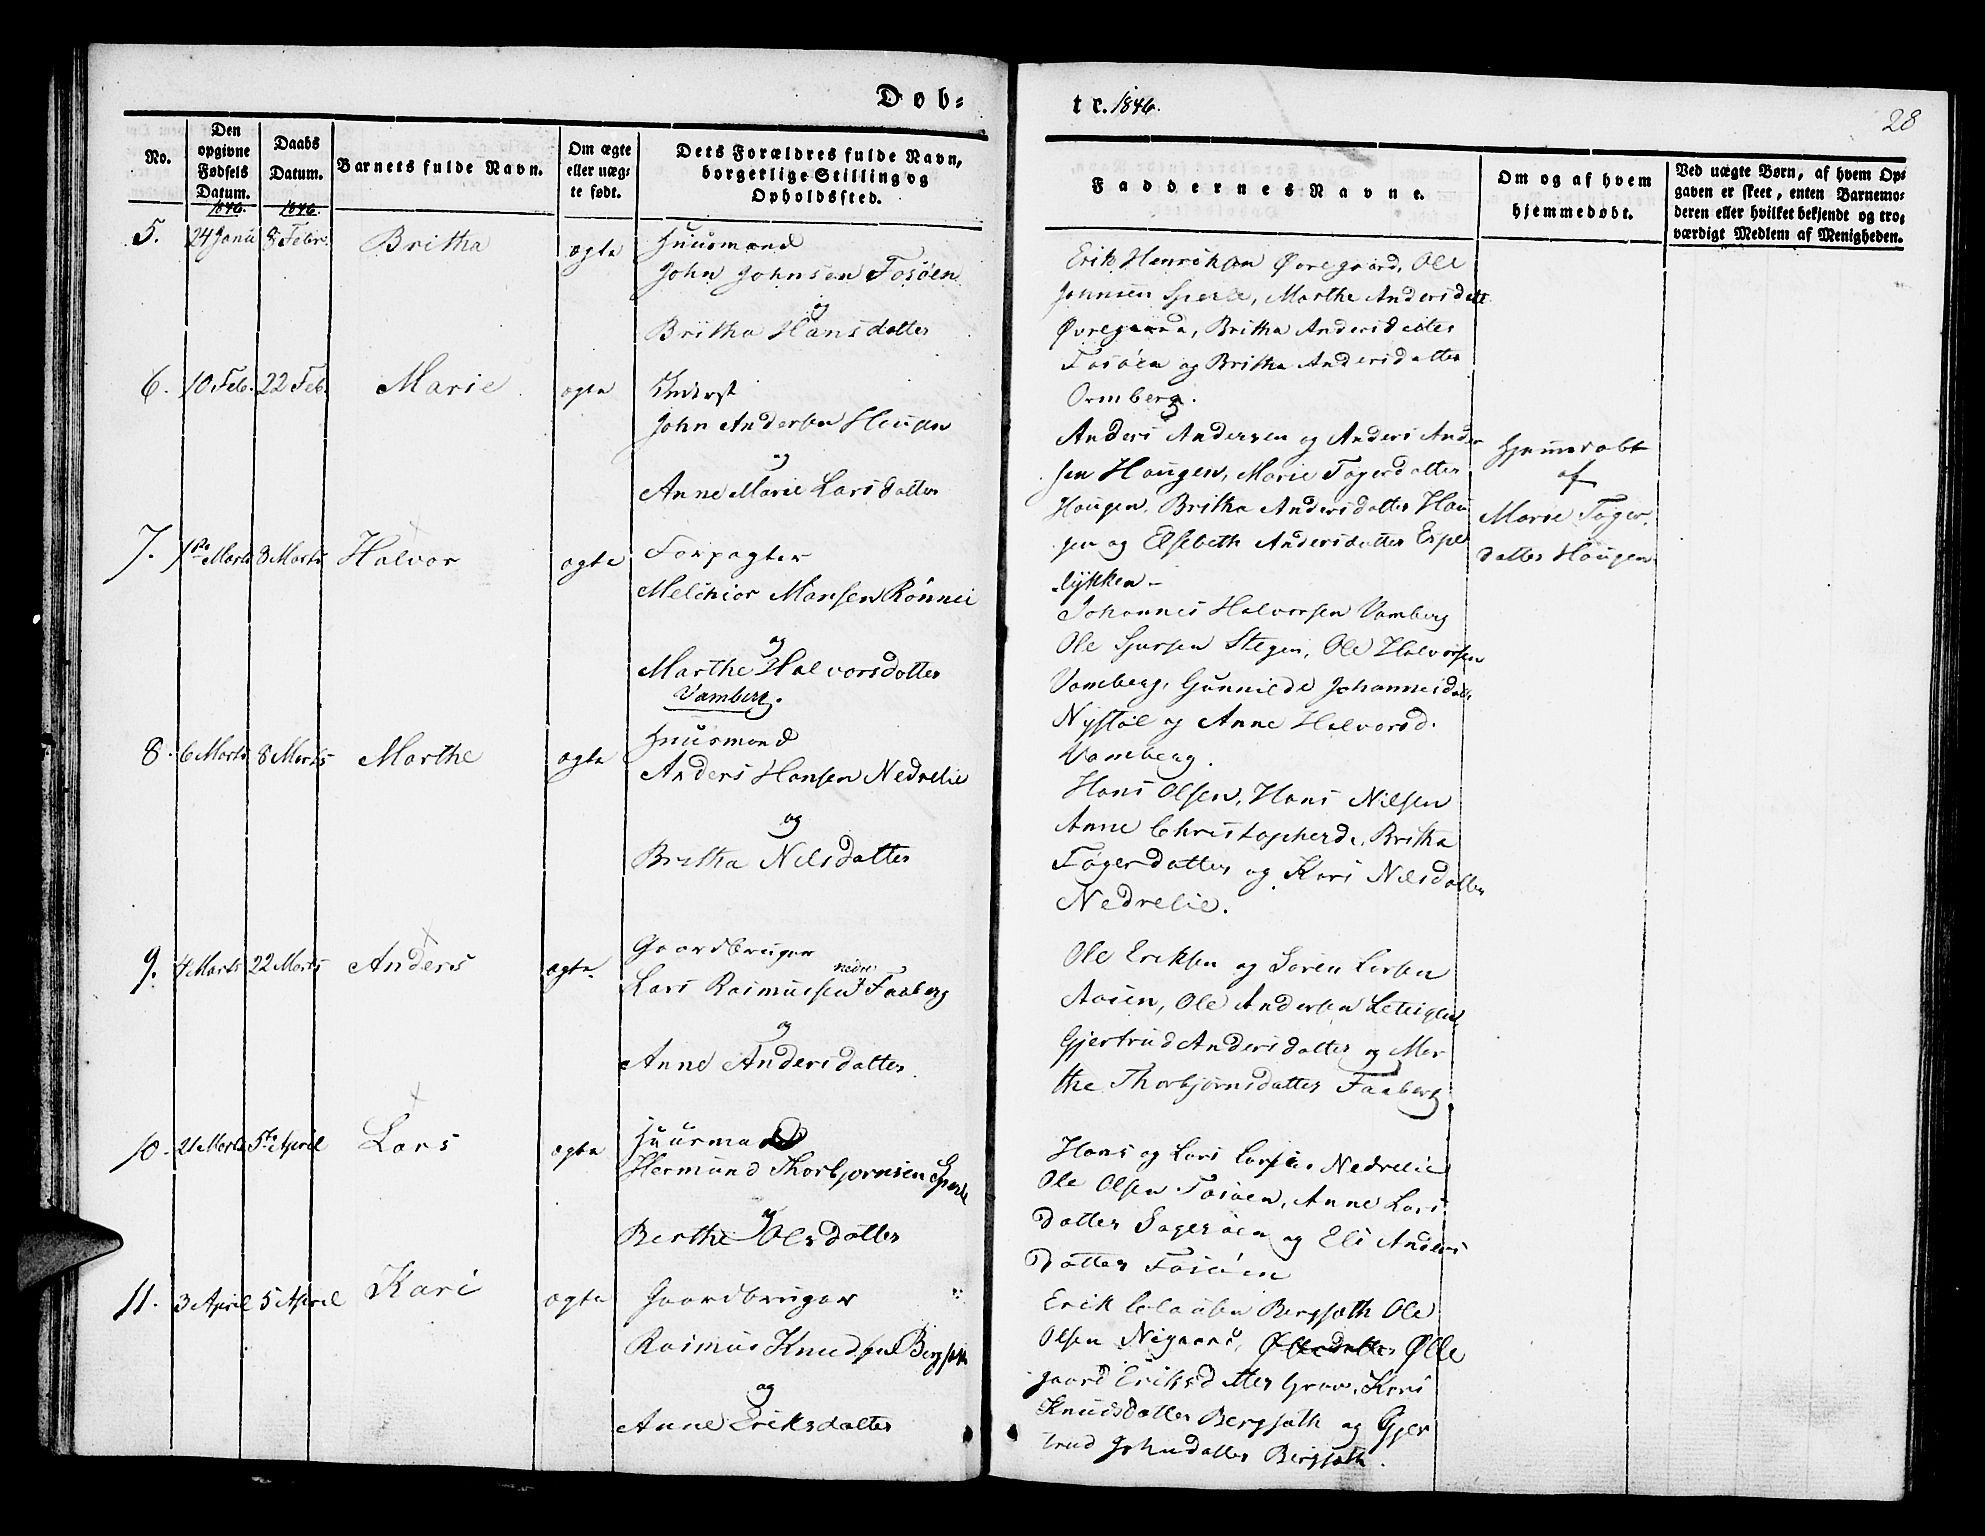 Døb=
te. 1846.
28
No.
Den
opgivne
Fødsels
Datum.
1846.
Daabs
Datum.
1846.
Barnets fulde Navn.
Om ægte
eller uæg-
te født.
Dets Forældres fulde Navn,
borgerlige Stilling og
Opholdssted.
Faddernes Navne.
Om og af hvem
hjemmedøbt.
Ved uægte Børn, af hvem Op-
gaven er skeet, enten Barnemo-
deren eller hvilket bekjendt og tro-
værdigt Medlem af Menigheden.
5. 24 Janu 8 Febr. Britha ægte Huusmand
John Johnsen Fosøen
og
Britha Hansdatter
Erik Henriksen Øvregaard, Ole
Johnsen Sperle, Marthe Andersdatt
Øvregaard, Britha Andersdatter
Fosøen og Britha Andersdatter
Ormberg.
6. 10 Feb. 22 Feb. Marie ægte Inderst
John Andersen Haugen
og
Anne Marie Larsdatter
Anders Andersen og Anders Ander
sen Haugen, Marie Tøgersdatter
Haugen, Britha Andersdatter Hau
gen og Elsebeth Andersdatter Espe
lykken –
Hjemmedøbt
af
Marie Tøger-
datter Haugen
7. 1ste Marts 8 Marts Halvor ægte Forpagter
Melchior Monsen Rønnei
og
Marthe Halvorsdatter
Vamberg.
Johannes Halvorsen Vamberg
Ole Sjursen Stegen, Ole Halvorsen
Vamberg, Gunnilde Johannesdatt.
Nystøl og Anne Halvorsd.
Vamberg.
8. 6 Marts 8 Marts Marthe ægte Huusmand
Anders Hansen Nedrelie
og
Britha Nilsdatter
Hans Olsen, Hans Nilsen
Anne Christopherd. Britha
Tøgersdatter og Kari Nilsdatter
Nedrelie.
9. 4 Marts 22 Marts Anders ægte Gaardbruger
Lars Rasmussen nedre Faaberg
og
Anne Andersdatter
Ole Eriksen og Søren Larsen
Aasen, Ole Andersen
Gjertrud Andersdatter og Mar
the Thorbjørnsdatter Faaberg
10. 21 Marts 5te April Lars ægte Huusmand
Hermund Thorbjørnsen Sperle
og
Berthe Olsdatter
Hans og Lars Larsen Nedrelie
Ole Olsen Fosøen, Anne Lars
datter Sagerøen og Eli Anders
datter Fosøen
11. 3 April 5 April Kari ægte Gaardbruger
Rasmus Knudsen Bergsæth
og
Anne Eriksdatter
Erik Clausen Bergsæth Ole
Olsen Nigaard, Ølle
gaard Eriksdatter Grov, Kari
Knudsdatter Bergsæth og Gjer
trud Johndatter Bergsæth.